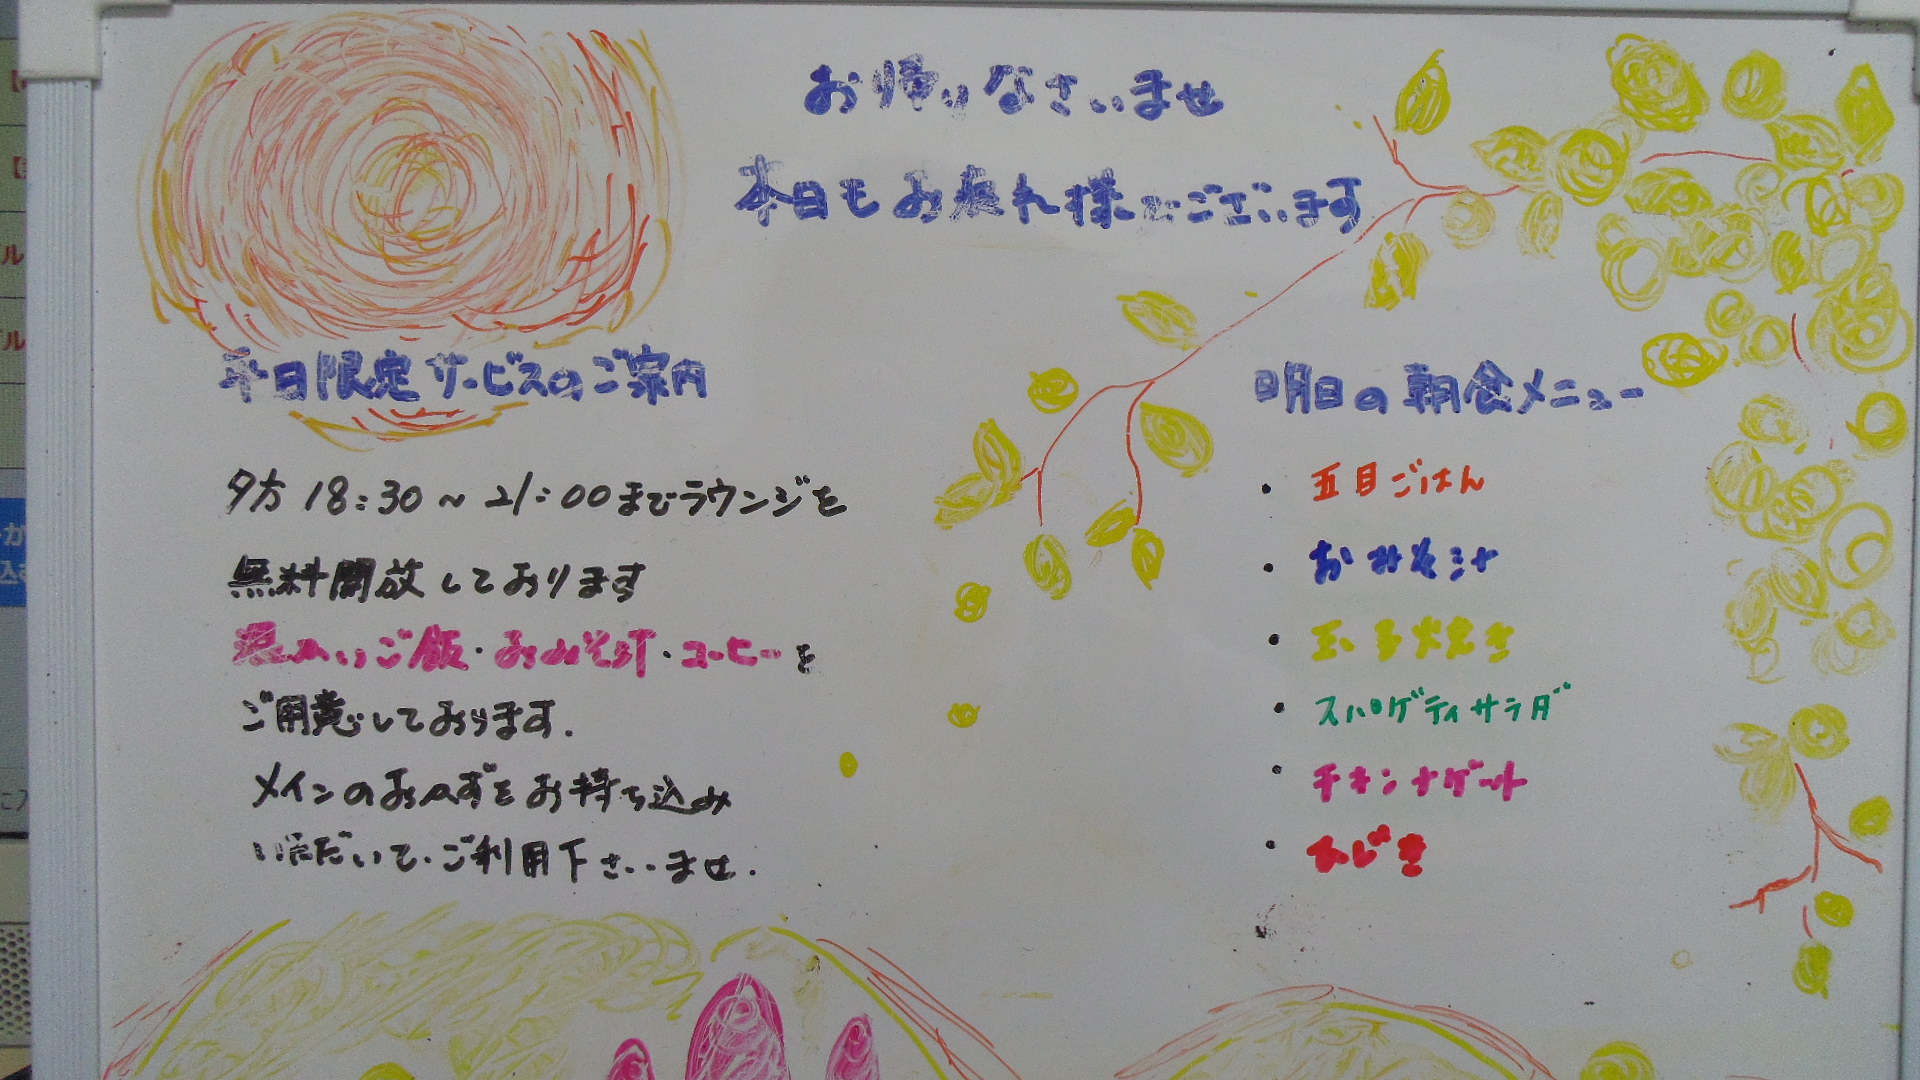 お帰りなさいませ
本日もお疲れ様でございます
平日限定サービスのご案内
夕方 18:30～21:00までラウンジを
無料開放しております
温かいご飯・おみそ汁・コーヒーを
ご用意しております.
メインのおかずをお持ち込み
いただいて、ご利用下さいませ.
明日の朝食メニュー
・五目ごはん
・おみそ汁
・玉子焼き
・スパゲティサラダ
・チキンナゲット
・ひじき